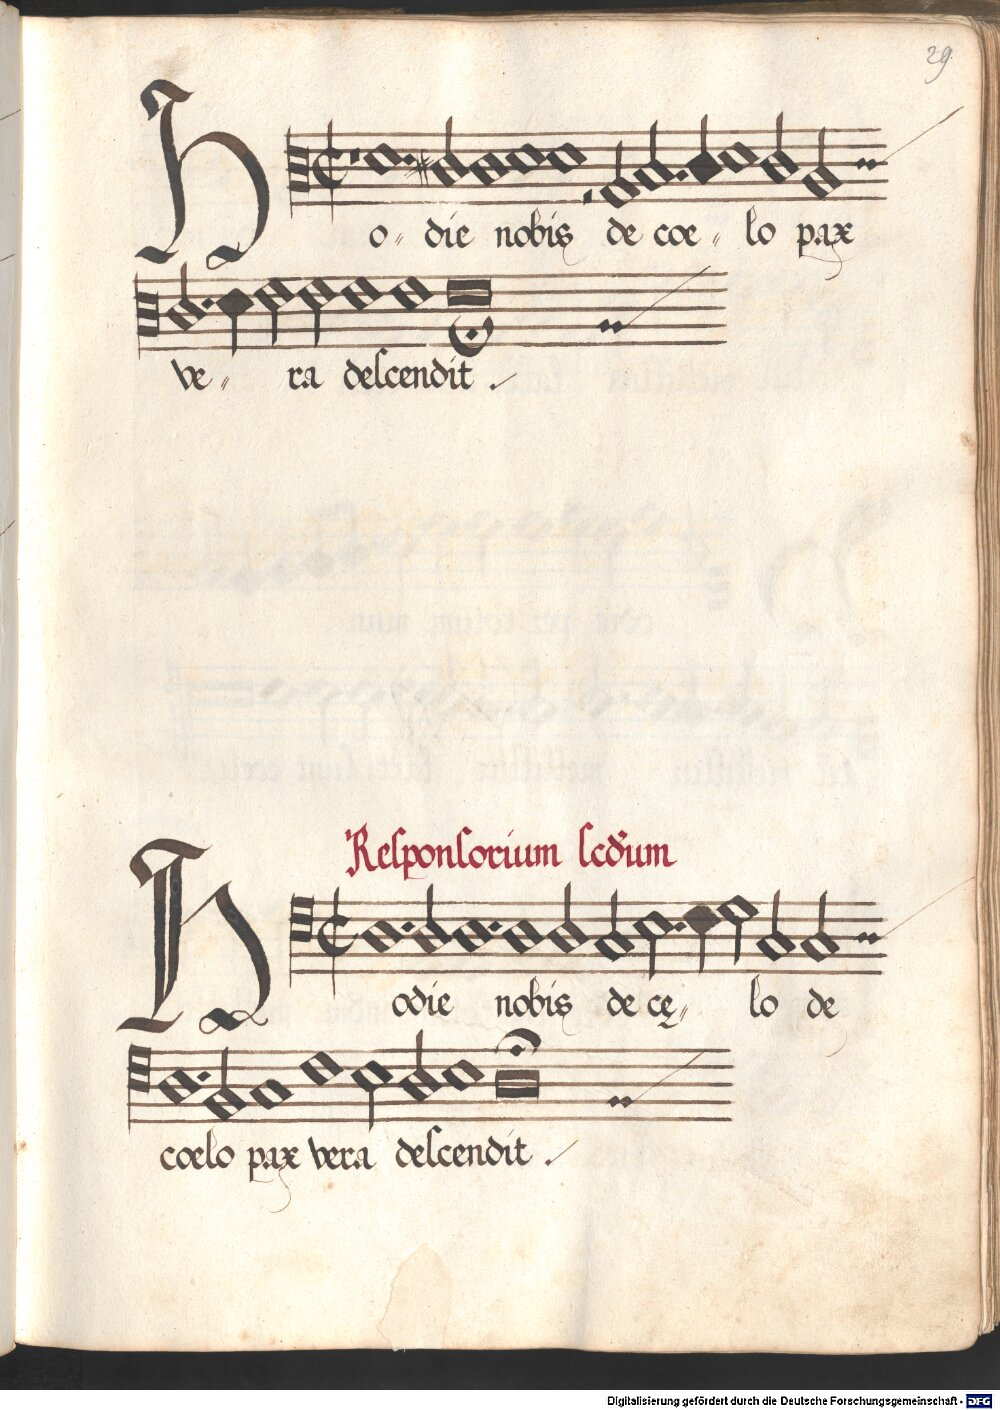 29
Ho⸗ die nobis de coe⸗ lo pax
ve⸗ ra descendit ./
Responsorium scdum
Hodie nobis de cę⸗ lo de
coelo pax vera descendit ./
Digitalisierung gefördert durch die Deutsche Forschungsgemeinschaft - DFG